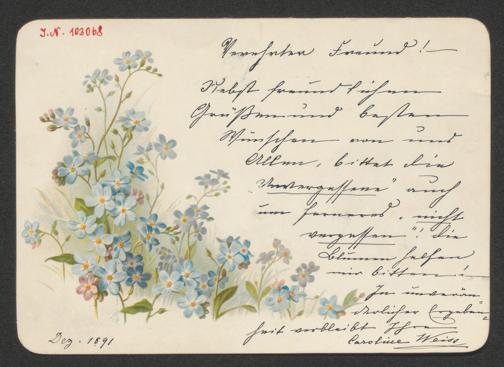 J.N. 103068
Verehrter Freund! —
Nebst freundlichen
Grüßen und besten
Wünschen von uns
Allen, bittet die
„Unvergessene" auch
um ferneres „nicht
vergessen"! die
Blumen helfen
mir bitten!
In unverän-
derlicher Ergeben-
heit verbleibt Ihre
Caroline Weiss
Dez. 1891